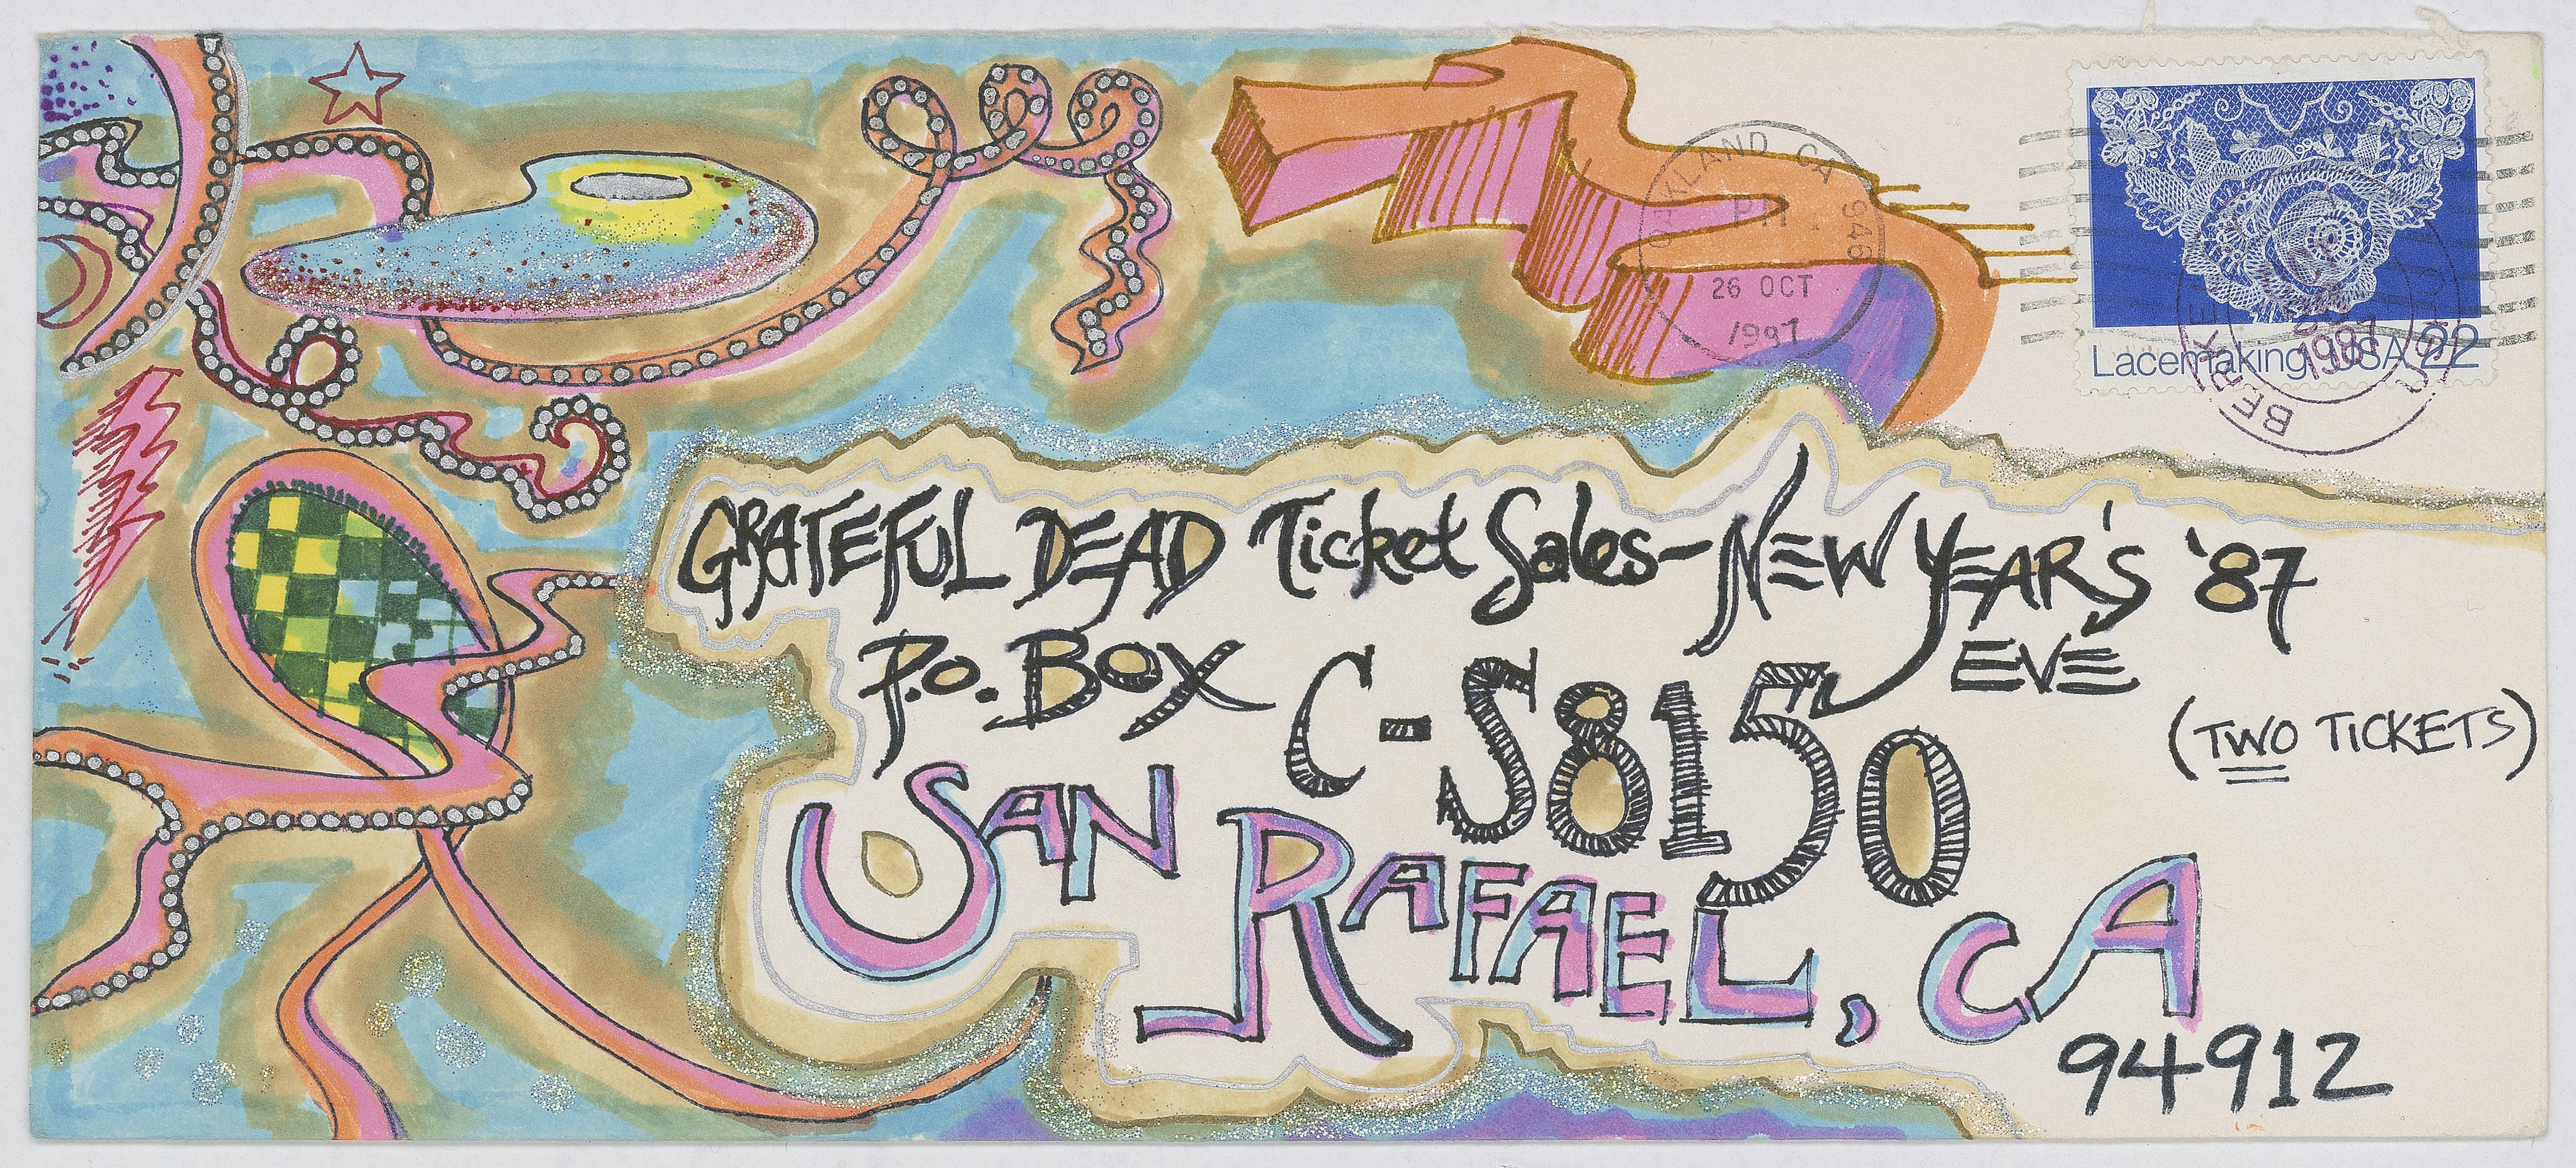 OAKLAND CA 946
PM
26 OCT
1987
Lacemaking USA 22
1987
GRATEFUL DEAD Ticket Sales - NEW YEAR'S '87
EVE
P.O. BOX C-S8150
(TWO TICKETS)
SAN RAFAEL, CA
94912